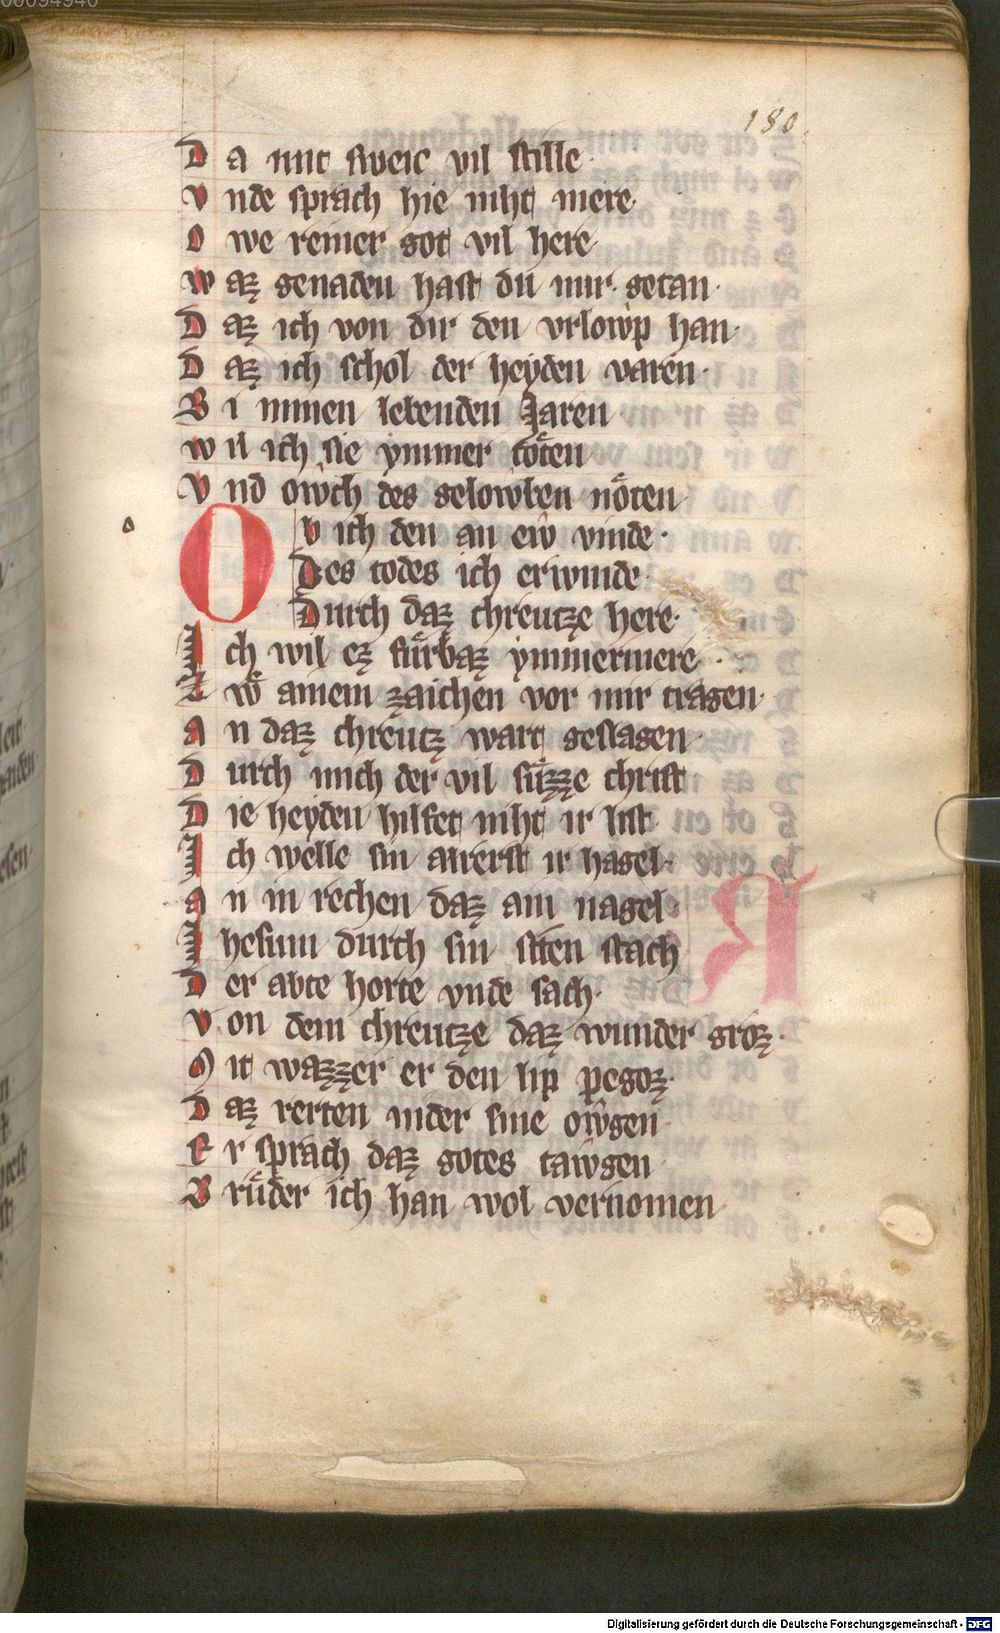 180.
Da mit sweic vil stille·
Vnde sprach hie niht mere·
Owe reiner got vil here·
Waz genaden hast du mir getan·
Daz ich von dir den vrlowp han·
Daz ich schol der heyden varen·
Bi minen lebenden Jaren·
Wil ich sie ymmer toͤten·
Vnd owch des gelowben noͤten·
a
Ov ich den an ew vinde·
Des todes ich erwinde·
Durch daz chreutze here·
Ich wil ez fuͤrbaz ymmermere·
Zw ainem zaichen vor mir tragen·
An daz chreutz wart geslagen·
Durch mich der vil suͤzze christ
Die heyden hilfet niht ir list·
Ich welle sin aűrerst ir hagel·
An in rechen daz ain nagel·
Jhesum durch sin siten stach
Der abte horte vnde sach·
Von dem chreutze daz wunder groz·
Mit wazzer er den lip pegoz·
Daz rerten nider sine owgen·
Er sprach daz gotes tawgen·
Bruͤder ich han wol vernomen·
Digitalisierung gefördert durch die Deutsche Forschungsgemeinschaft - DFG